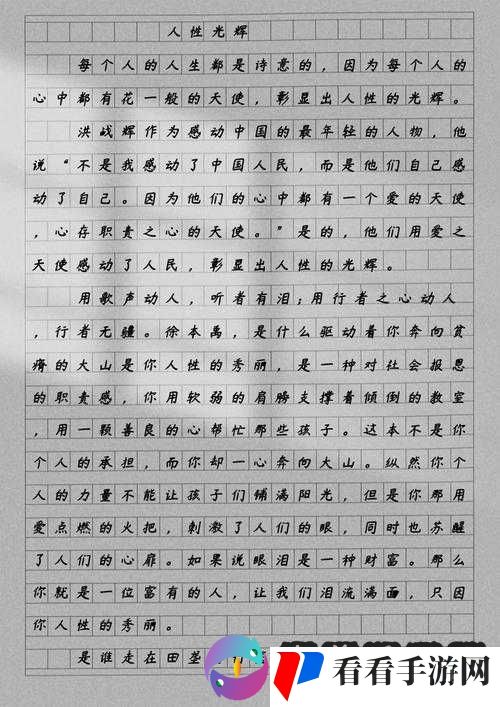 人性光辉
每个人的人生都是诗意的，因为每个人的
心中都有花一般的天使，彰显出人性的光辉。
洪战辉作为感动中国的最年轻的人物，他
说“不是我感动了中国人民，而是他们自己感
动了自己。因为他们的心中都有一个爱的天使
，心存职责之心的天使。”是的，他们用爱之
天使感动了人民，彰显出人性的光辉。
用歌声动人，听者有泪；用行者之心动人
，行者无疆。徐本禹，是什么驱动着你奔向贫
瘠的大山是你人性的秀丽，是一种对社会报恩
的职责感，你用软弱的肩膀支撑着倾倒的教室
，用一颗善良的心帮忙那些孩子。这本不是你
个人的承担，而你却一心奔向大山。纵然你个
人的力量不能让孩子们铺满阳光，但是你那用
爱点燃的火把，刺激了人们的眼，同时也苏醒
了人们的心扉。如果说眼泪是一种财富。那么
你就是一位富有的人，让我们泪流满面，只因
你人性的秀丽。
是谁走在田垄
看看手游网